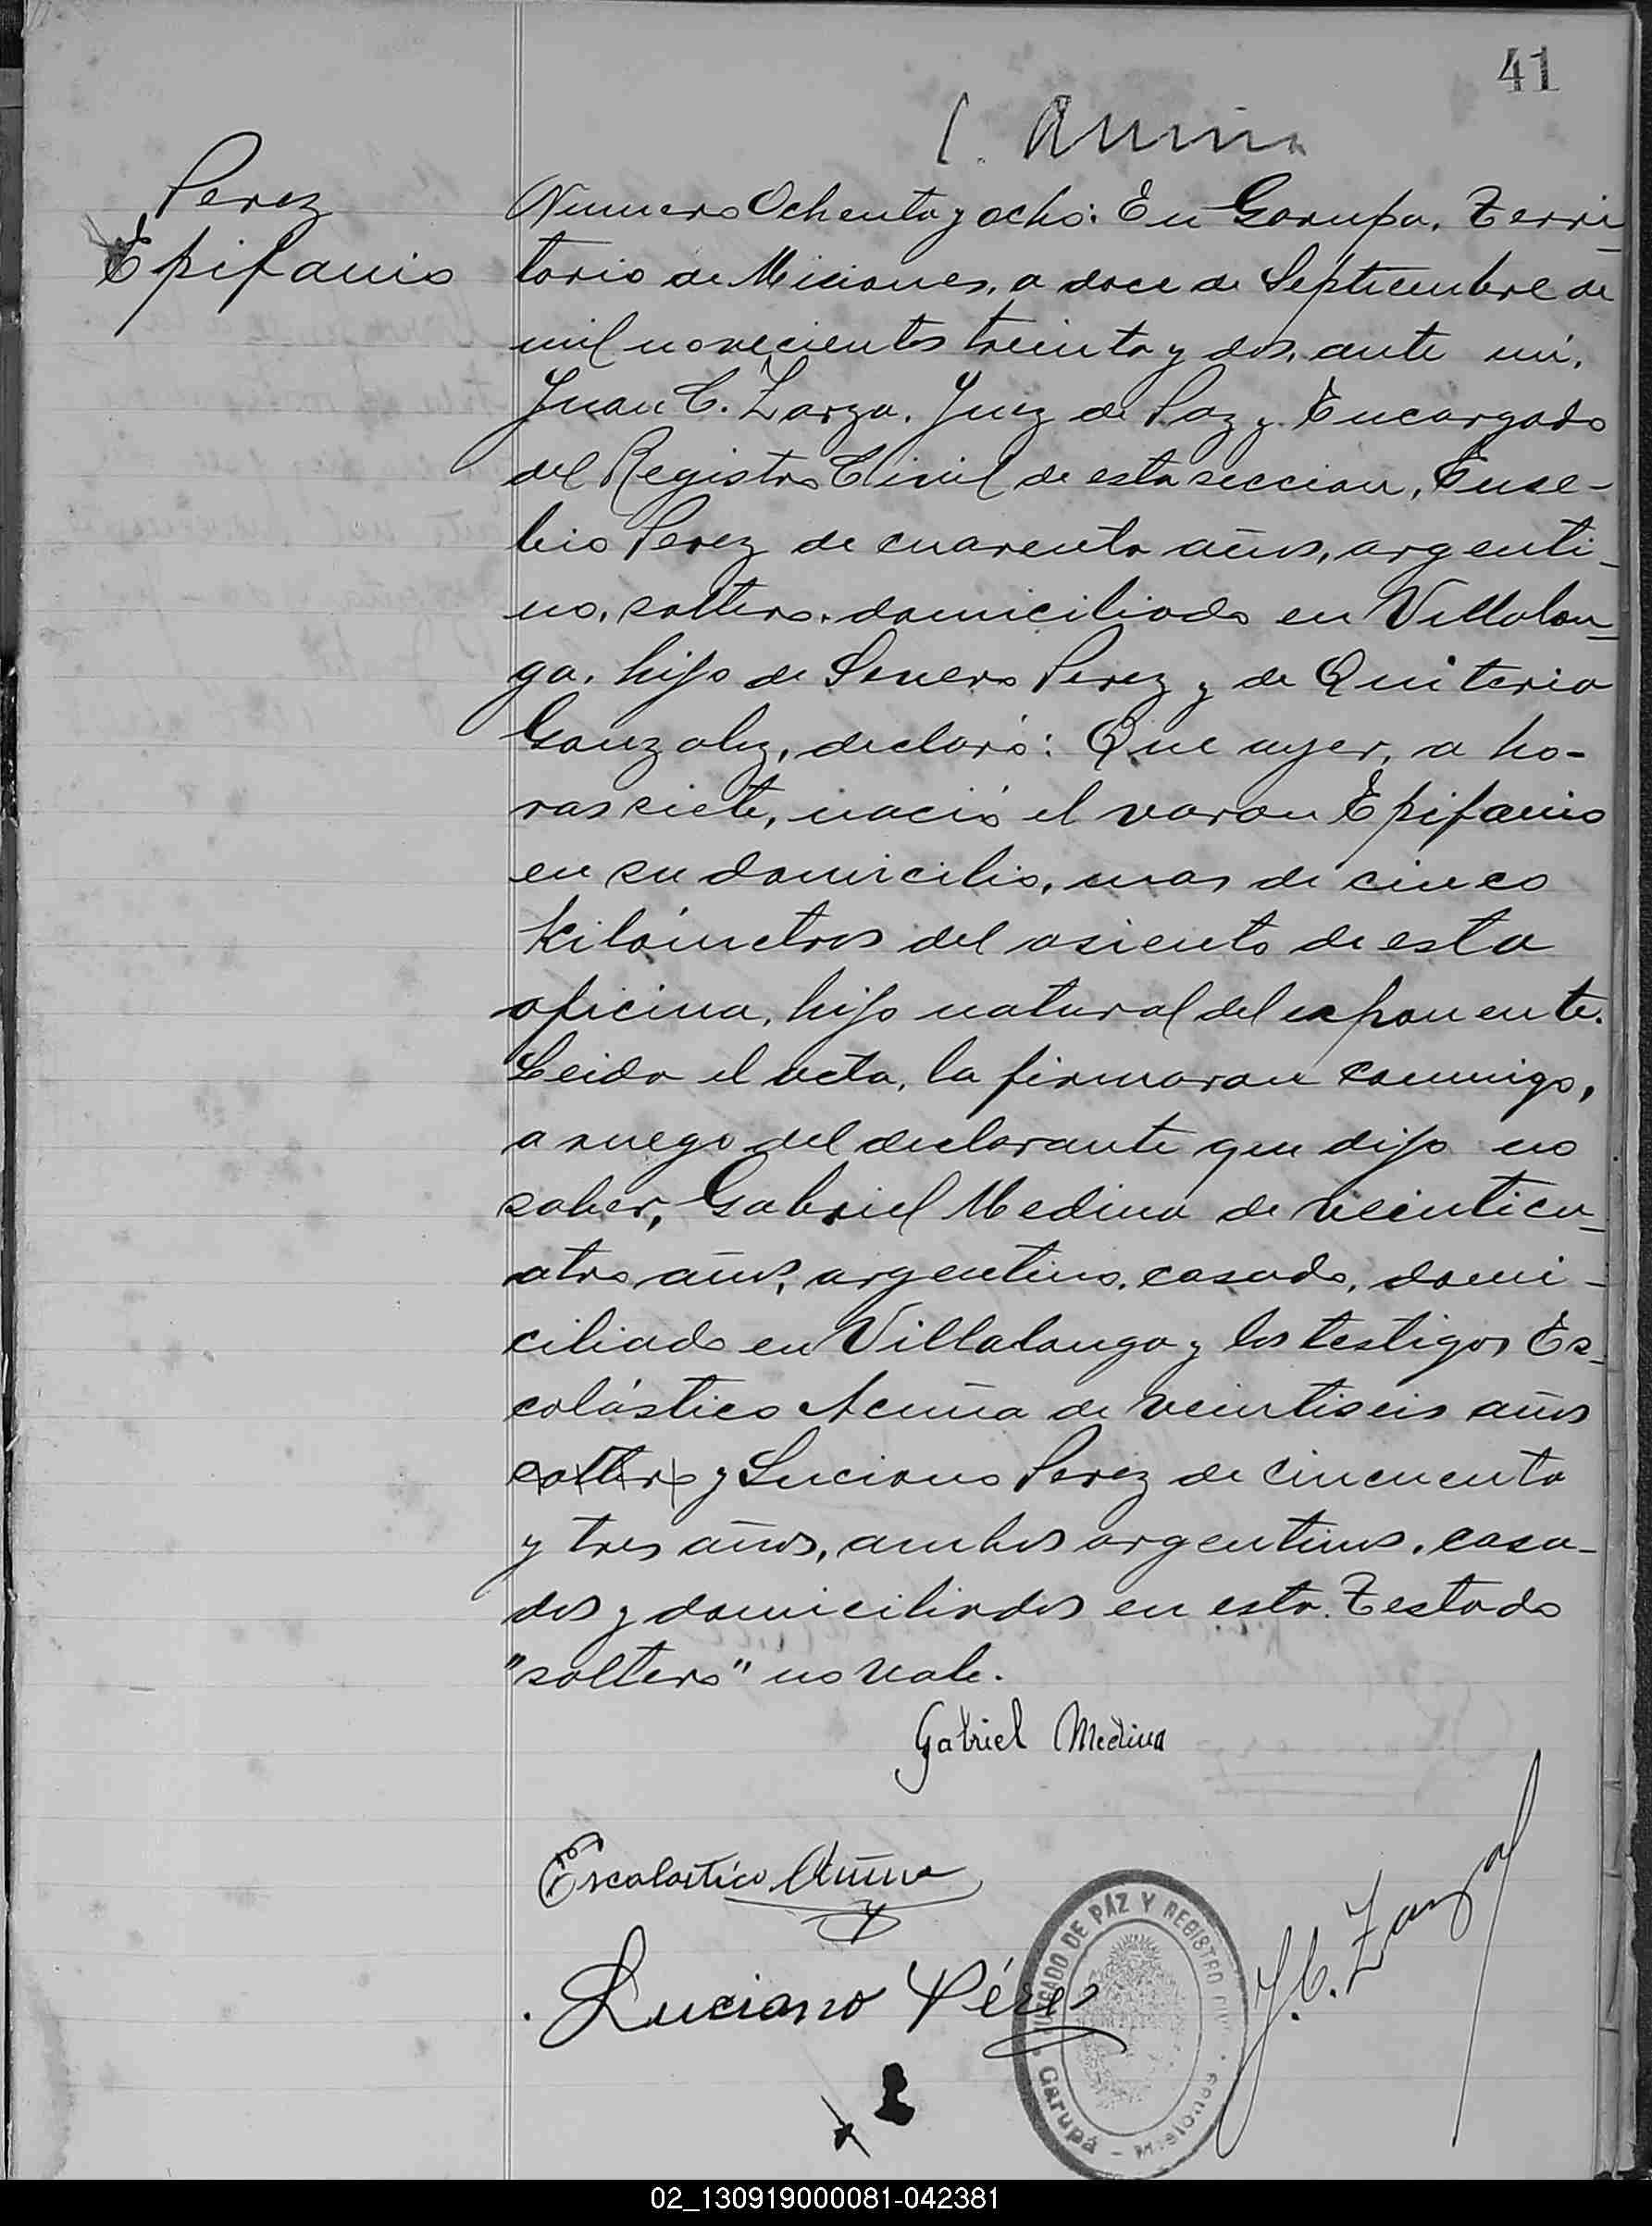 41
Perez
Epifanio
Numero Ochenta y ocho: En Garupa, Terri-
torio de Misiones, a doce de Septiembre de
mil novecientos treinta y dos, ante mi,
Juan C. Zarza, Juez de Paz y Encargado
del Registro Civil de esta seccion, Euse-
bio Perez de cuarenta años, argenti-
no, soltero, domiciliado en Villalon-
ga, hijo de Severo Perez y de Quiteria
Gonzalez, declaró: Que ayer, a ho-
ras siete, nació el varon Epifanio
en su domicilio, mas de cinco
kilómetros del asiento de esta
oficina, hijo natural del exponente.
Leida el acta, la firmaron conmigo,
a ruego del declarante que dijo no
saber, Gabriel Medina de veinticu-
atro años, argentino, casado, domi-
ciliado en Villalonga y los testigos Es-
colástico Acuña de veintiseis años
soltero y Luciano Perez de cincuenta
y tres años, ambos argentinos, casa-
dos y domiciliados en esta. Testado
"soltero" no vale.
Gabriel Medina
Escolastico Acuña
Luciano Pérez
J. C. Zarza
JUZGADO DE PAZ Y REGISTRO CIVIL
Garupá - Misiones
02_130919000081-042381